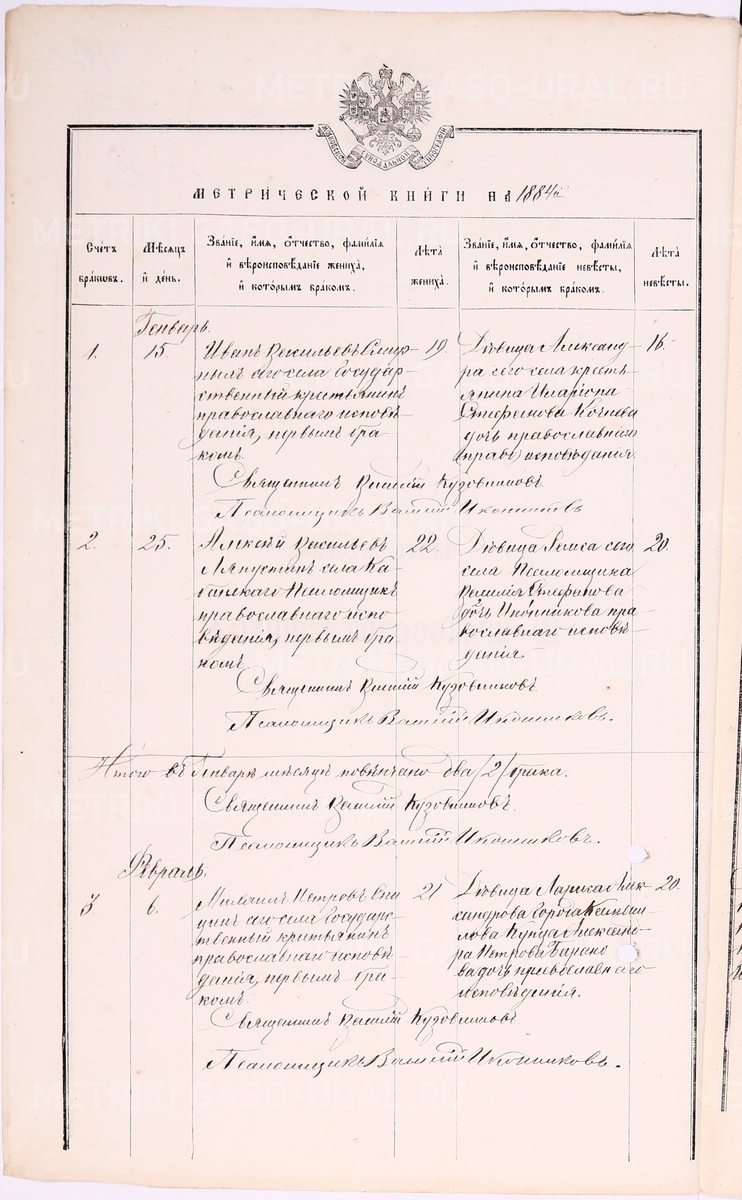 МОСКОВСКОЙ СѴНОДАЛЬНОЙ ТИПОГРАФІИ
МЕТРИЧЕСКОЙ КНИГИ НА 1884й
Счетъ браковъ.
Мѣсяцъ и день.
Званіе, имя, отчество, фамилія и вѣроисповѣданіе жениха, и которымъ бракомъ.
Лѣта жениха.
Званіе, имя, отчество, фамилія и вѣроисповѣданіе невѣсты, и которымъ бракомъ.
Лѣта невѣсты.
Генварь.
1.
15.
Иванъ Васильевъ Смир-
нымъ сего села Государ-
ственный крестьянинъ
православнаго исповѣ-
данія, первымъ бра-
комъ.
19.
Дѣвица Александ-
ра сего села кресть-
янина Иларіона
Стефанова Кочнева
дочь православнаго
исповѣданія.
16.
Священникъ Василій Кузовниковъ.
Псаломщикъ Василій Иконниковъ
2.
25.
Алексѣй Васильевъ
Ляпустинъ села Ка-
банскаго Псаломщикъ
православнаго испо-
вѣданія, первымъ бра-
комъ.
22.
Дѣвица Раиса сего
села Псаломщика
Василія Стефанова
дочь Иконникова пра-
вославнаго исповѣ-
данія.
20.
Священникъ Василій Кузовниковъ.
Псаломщикъ Василій Иконниковъ.
Итого въ Генварѣ мѣсяцѣ повѣнчано два /2/ брака.
Священникъ Василій Кузовниковъ.
Псаломщикъ Василій Иконниковъ.
Февраль.
3
6.
Михаилъ Петровъ
сего села Государс-
твенный крестьянинъ
православнаго исповѣ-
данія, первымъ бра-
комъ.
21.
Дѣвица Лариса Алек-
сандрова города Камыш-
лова Купца Александ-
ра Петрова Барано
ва дочь православнаго
исповѣданія.
20.
Священникъ Василій Кузовниковъ
Псаломщикъ Василій Иконниковъ.